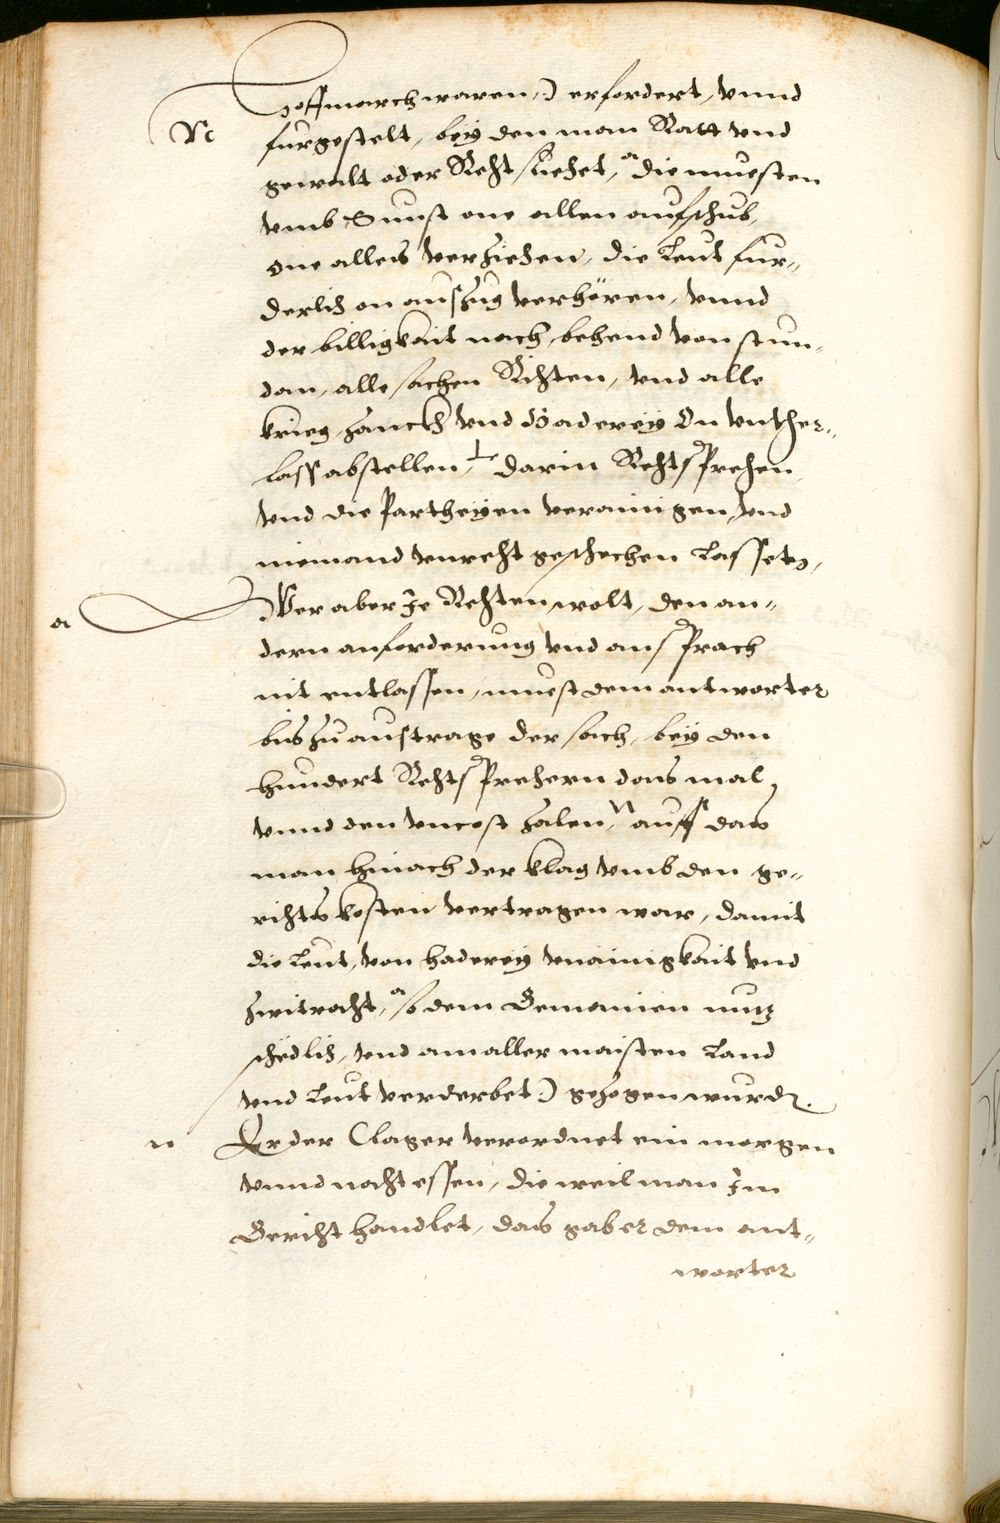 Hoffmarch waren,) erfordert, vnnd
Nc
furgestelt, bey den man Ratt vnd
gewalt oder Recht suechet, a die muesten
vmb Sunst one allen aufschub,
one alles verziehen, die Leut fur„
derlich on auszug verhören, vnnd
der billigkait nach, behend von stun„
dan, alle sachen Richten, vnd alle
krieg, zanckh vnd Haderey On vnther„
lass abstellen, darin Rechtsprechen
vnd die Partheyen verainigen, vnd
niemand vnrecht geschechen Lassen,
a
Wer aber Je Rechten wolt, den an„
dern anforderung vnd ansprach
nit entlassen, muest dem antworter
bis zu austrage der sach, bey den
hundert Rechtsprechern das mal
vnnd den vncost zalen, n auff das
man hinach der klag vmb den ge„
richts kosten vertragen war, damit
die Leut, von haderey vnainigkait vnd
zwitracht, a so dem Gemainen nutz
schedlich, vnd am aller maisten Land
vnd Leut verderbet) gezogen wurd.
n
Er der Clager verordnet ein morgen
vnnd nacht essen, die weil man Jm
Gericht handlet, das gab er dem ant„
worter